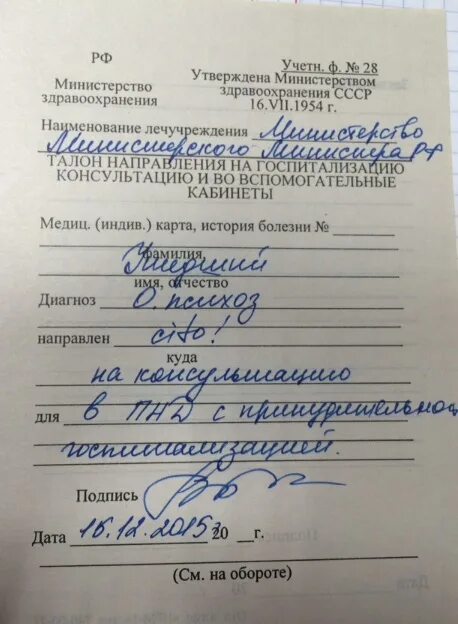 РФ
Министерство
здравоохранения
Учетн. ф. № 28
Утверждена Министерством
здравоохранения СССР
16.VII.1954 г.
Наименование лечучреждения Министерство
Министерского Министра РФ
ТАЛОН НАПРАВЛЕНИЯ НА ГОСПИТАЛИЗАЦИЮ
КОНСУЛЬТАЦИЮ И ВО ВСПОМОГАТЕЛЬНЫЕ
КАБИНЕТЫ
Медиц. (индив.) карта, история болезни №
фамилия,
имя, отчество
Диагноз О. психоз
направлен cito!
куда
на консультацию
для в ПНД с принудительной
госпитализацией.
Подпись
Дата 16.12.2015г 20 г.
(См. на обороте)